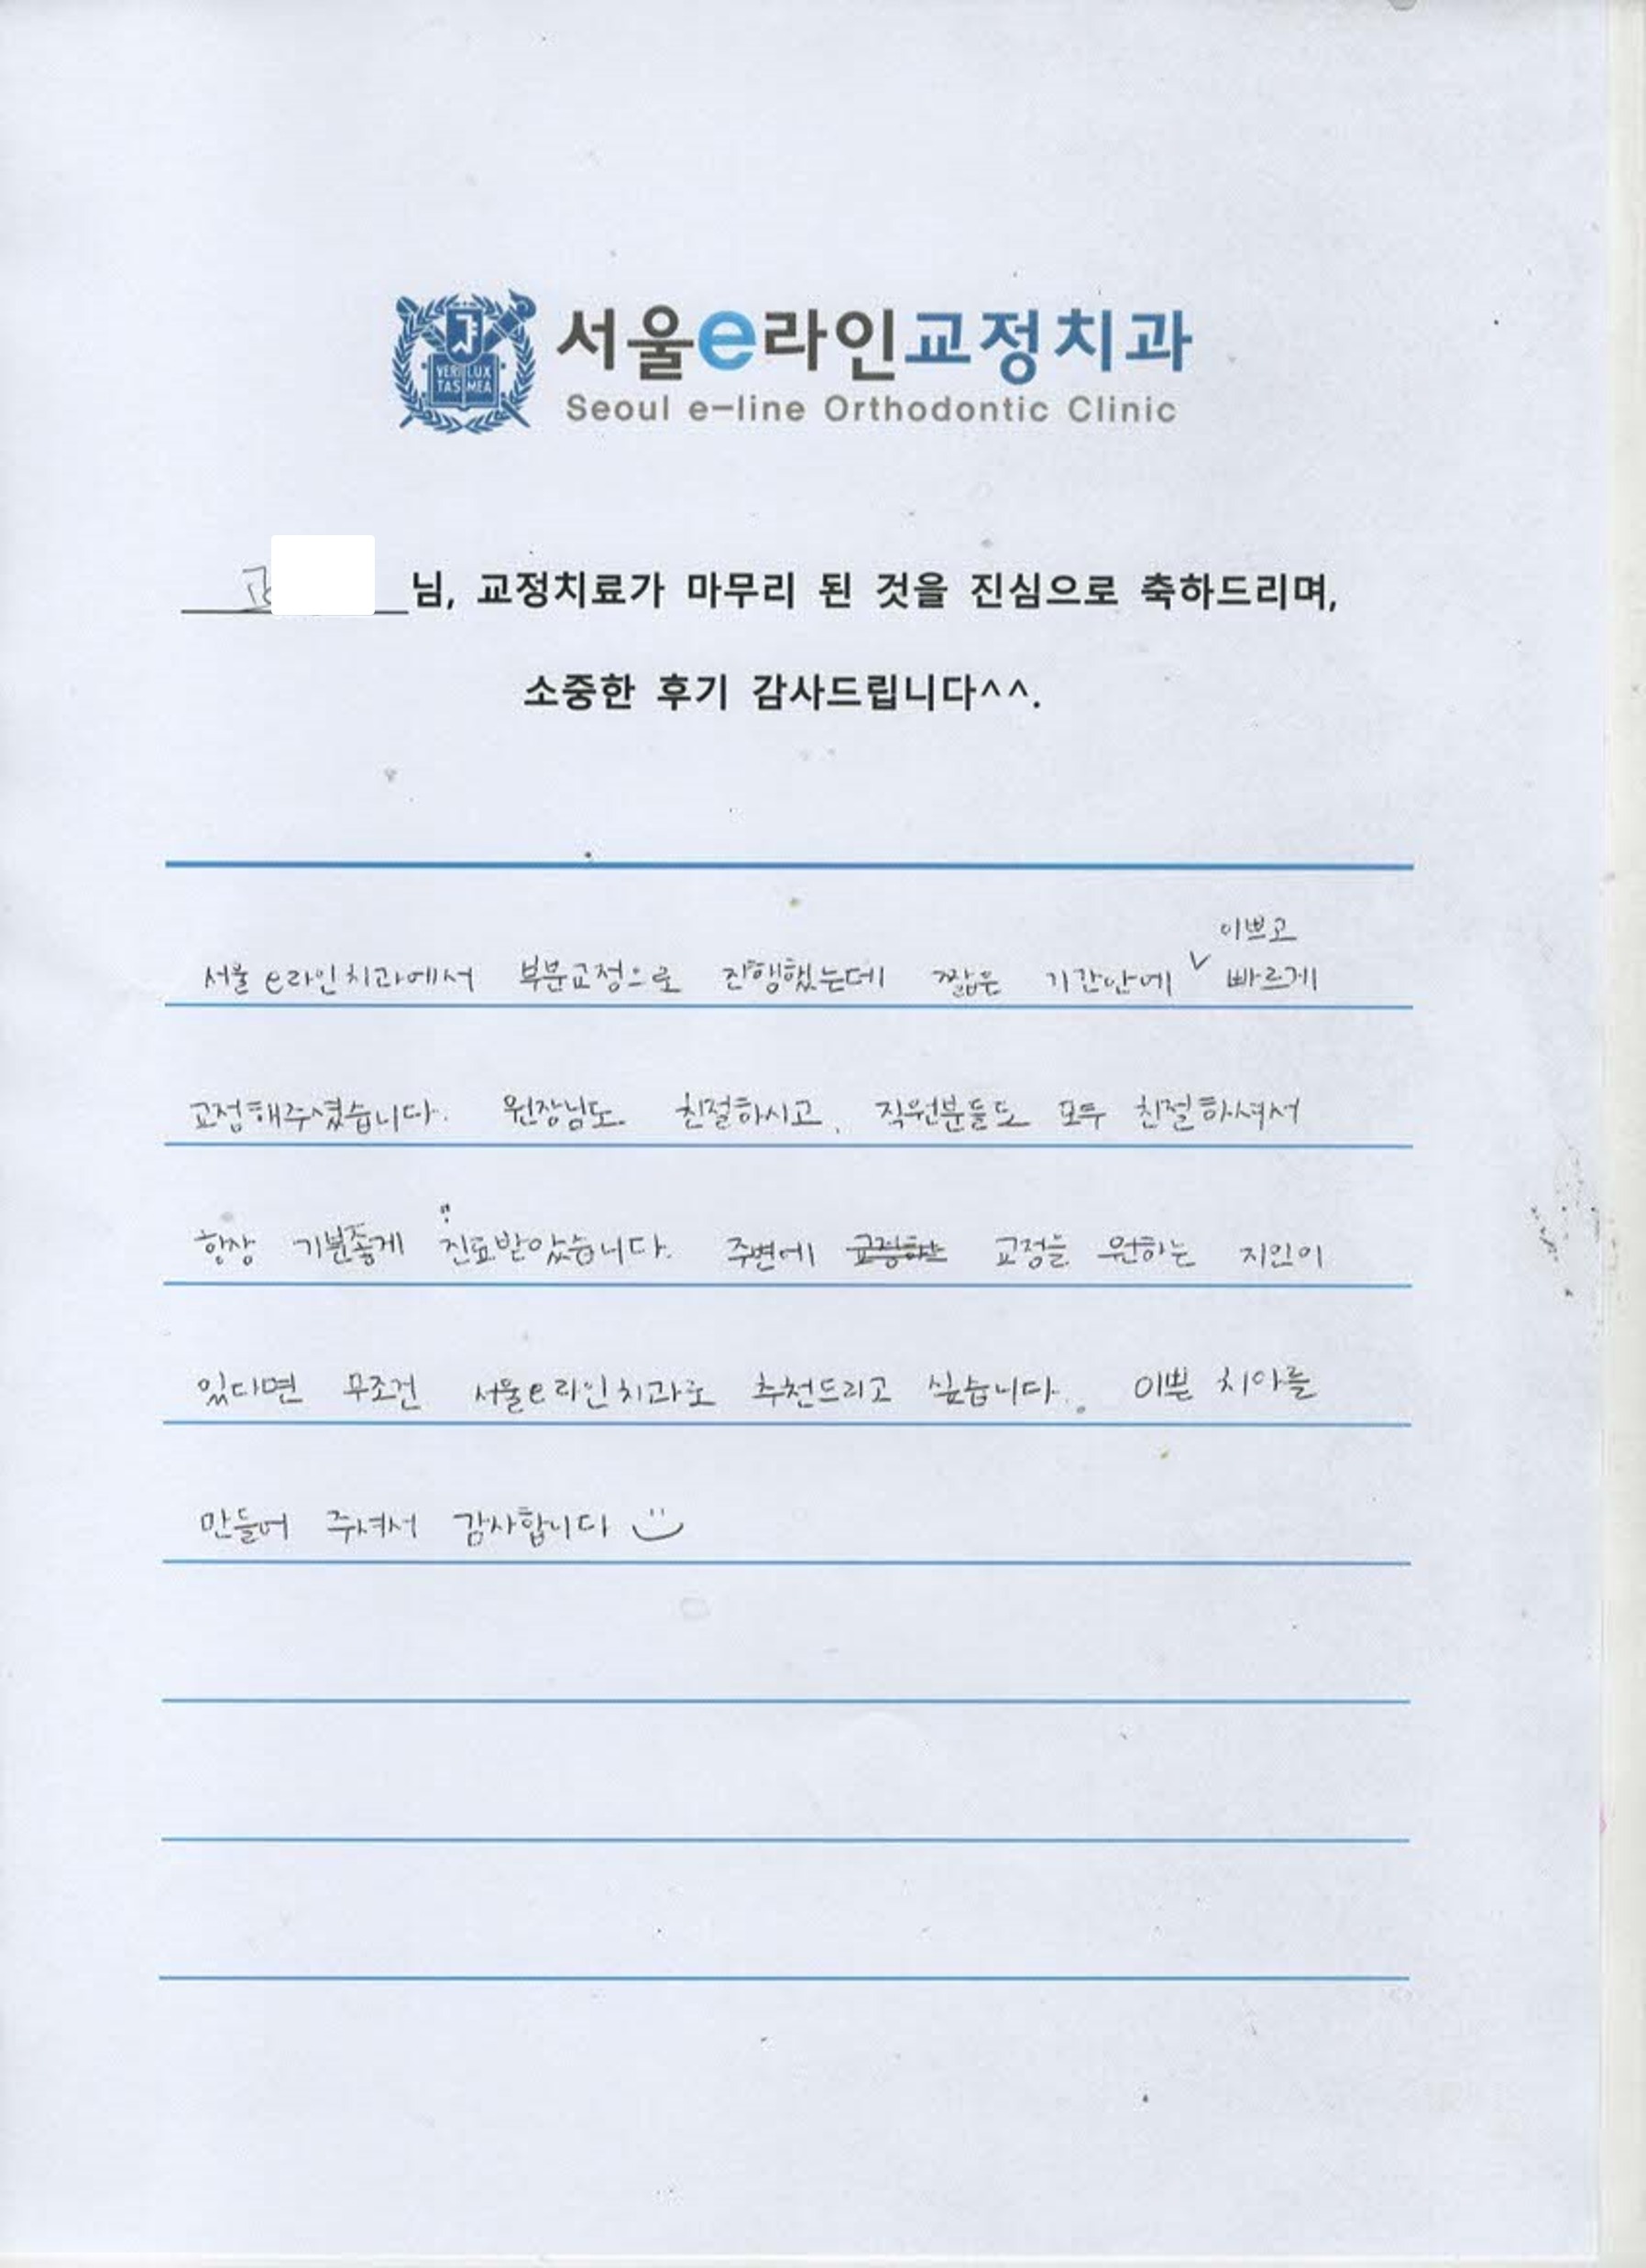 서울e라인교정치과
VERI LUX
TAS MEA
Seoul e-line Orthodontic Clinic
님, 교정치료가 마무리 된 것을 진심으로 축하드리며,
소중한 후기 감사드립니다^^.
이쁘고
서울e라인치과에서 부분교정으로 진행했는데 짧은 기간안에 ∨ 빠르게
교정해주셨습니다. 원장님도 친절하시고, 직원분들도 모두 친절하셔서
항상 기분좋게 진료받았습니다. 주변에 교정을 원하는 지인이
있다면 무조건 서울e라인치과로 추천드리고 싶습니다. 이쁜 치아를
만들어 주셔서 감사합니다